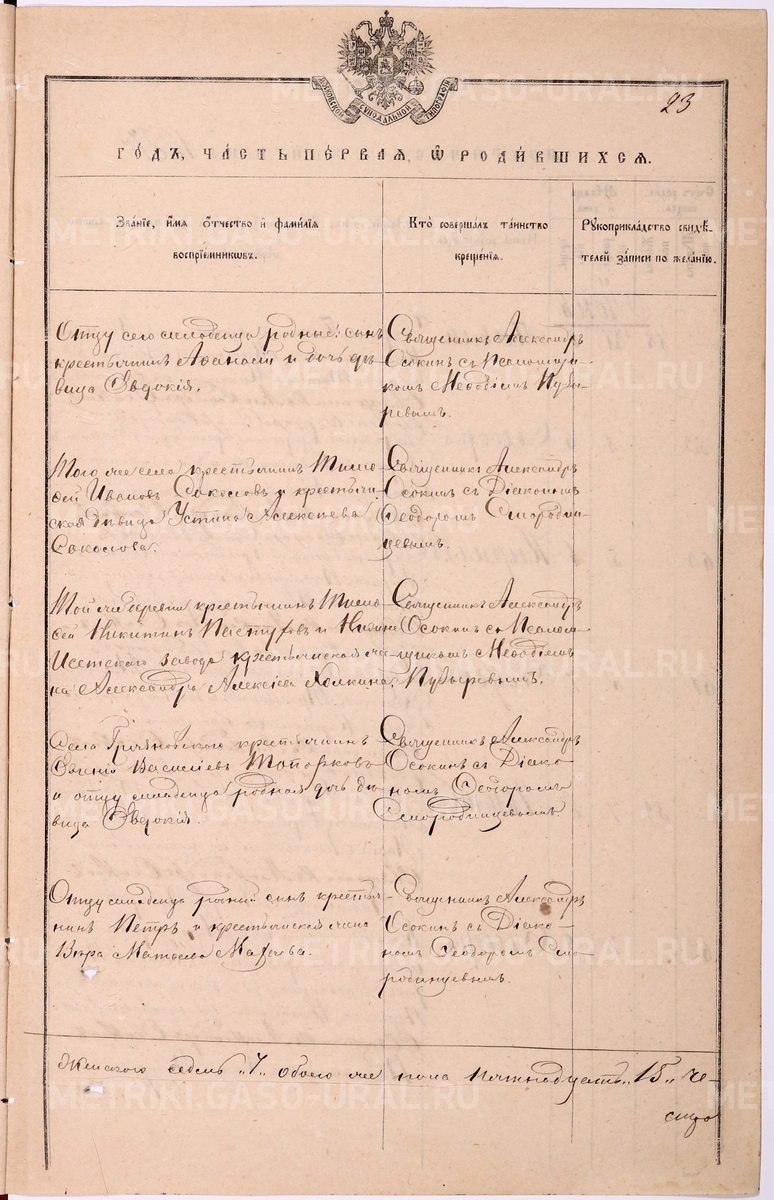 МОСКОВСКОЙ СѴНОДАЛЬНОЙ ТИПОГРАФІИ
23
ГОДЪ, ЧАСТЬ ПЕРВАЯ, Ѿ РОДИВШИХСЯ.
Званіе, имя отчество и фамилія
воспріемниковъ.
Кто совершалъ таинство
крещенія.
Рукоприкладство свидѣ-
телей записи по желанію.
Отцу сего младенца родные: сынъ
крестьянинъ Афанасій и дочь дѣ-
вица Евдокія.
Священникъ Александръ
Осокинъ съ Псаломщи-
комъ Меѳодіемъ Пузы-
ревымъ.
Того же села крестьянинъ Тимо-
фей Ивановъ и крестьян-
ская дѣвица Устина Алексѣева
Священникъ Александръ
Осокинъ съ Діакономъ
Ѳеодоромъ Смородин-
цевымъ.
Той же деревни крестьянинъ Тимо-
фей Никитинъ Пастуховъ и Нижне-
Исетскаго завода крестьянская же-
на Александра Алексѣева Холкина.
Священникъ Александръ
Осокинъ съ Псалом-
щикомъ Меѳодіемъ
Пузыревымъ.
Села крестьянинъ
Евгеній Василіевъ Топорковъ
и отцу младенца родная дочь дѣ-
вица Евдокія.
Священникъ Александръ
Осокинъ съ Діако-
номъ Ѳеодоромъ
Смородинцевымъ
Отцу младенца родный сынъ крестья-
нинъ Петръ и крестьянская жена
Вѣра
Священникъ Александръ
Осокинъ съ Діако-
номъ Ѳеодоромъ Смо-
родинцевымъ.
Женского седмь „7„ обоего же пола пятнадцать „15„ че-
METRIKI.GASO-URAL.RU